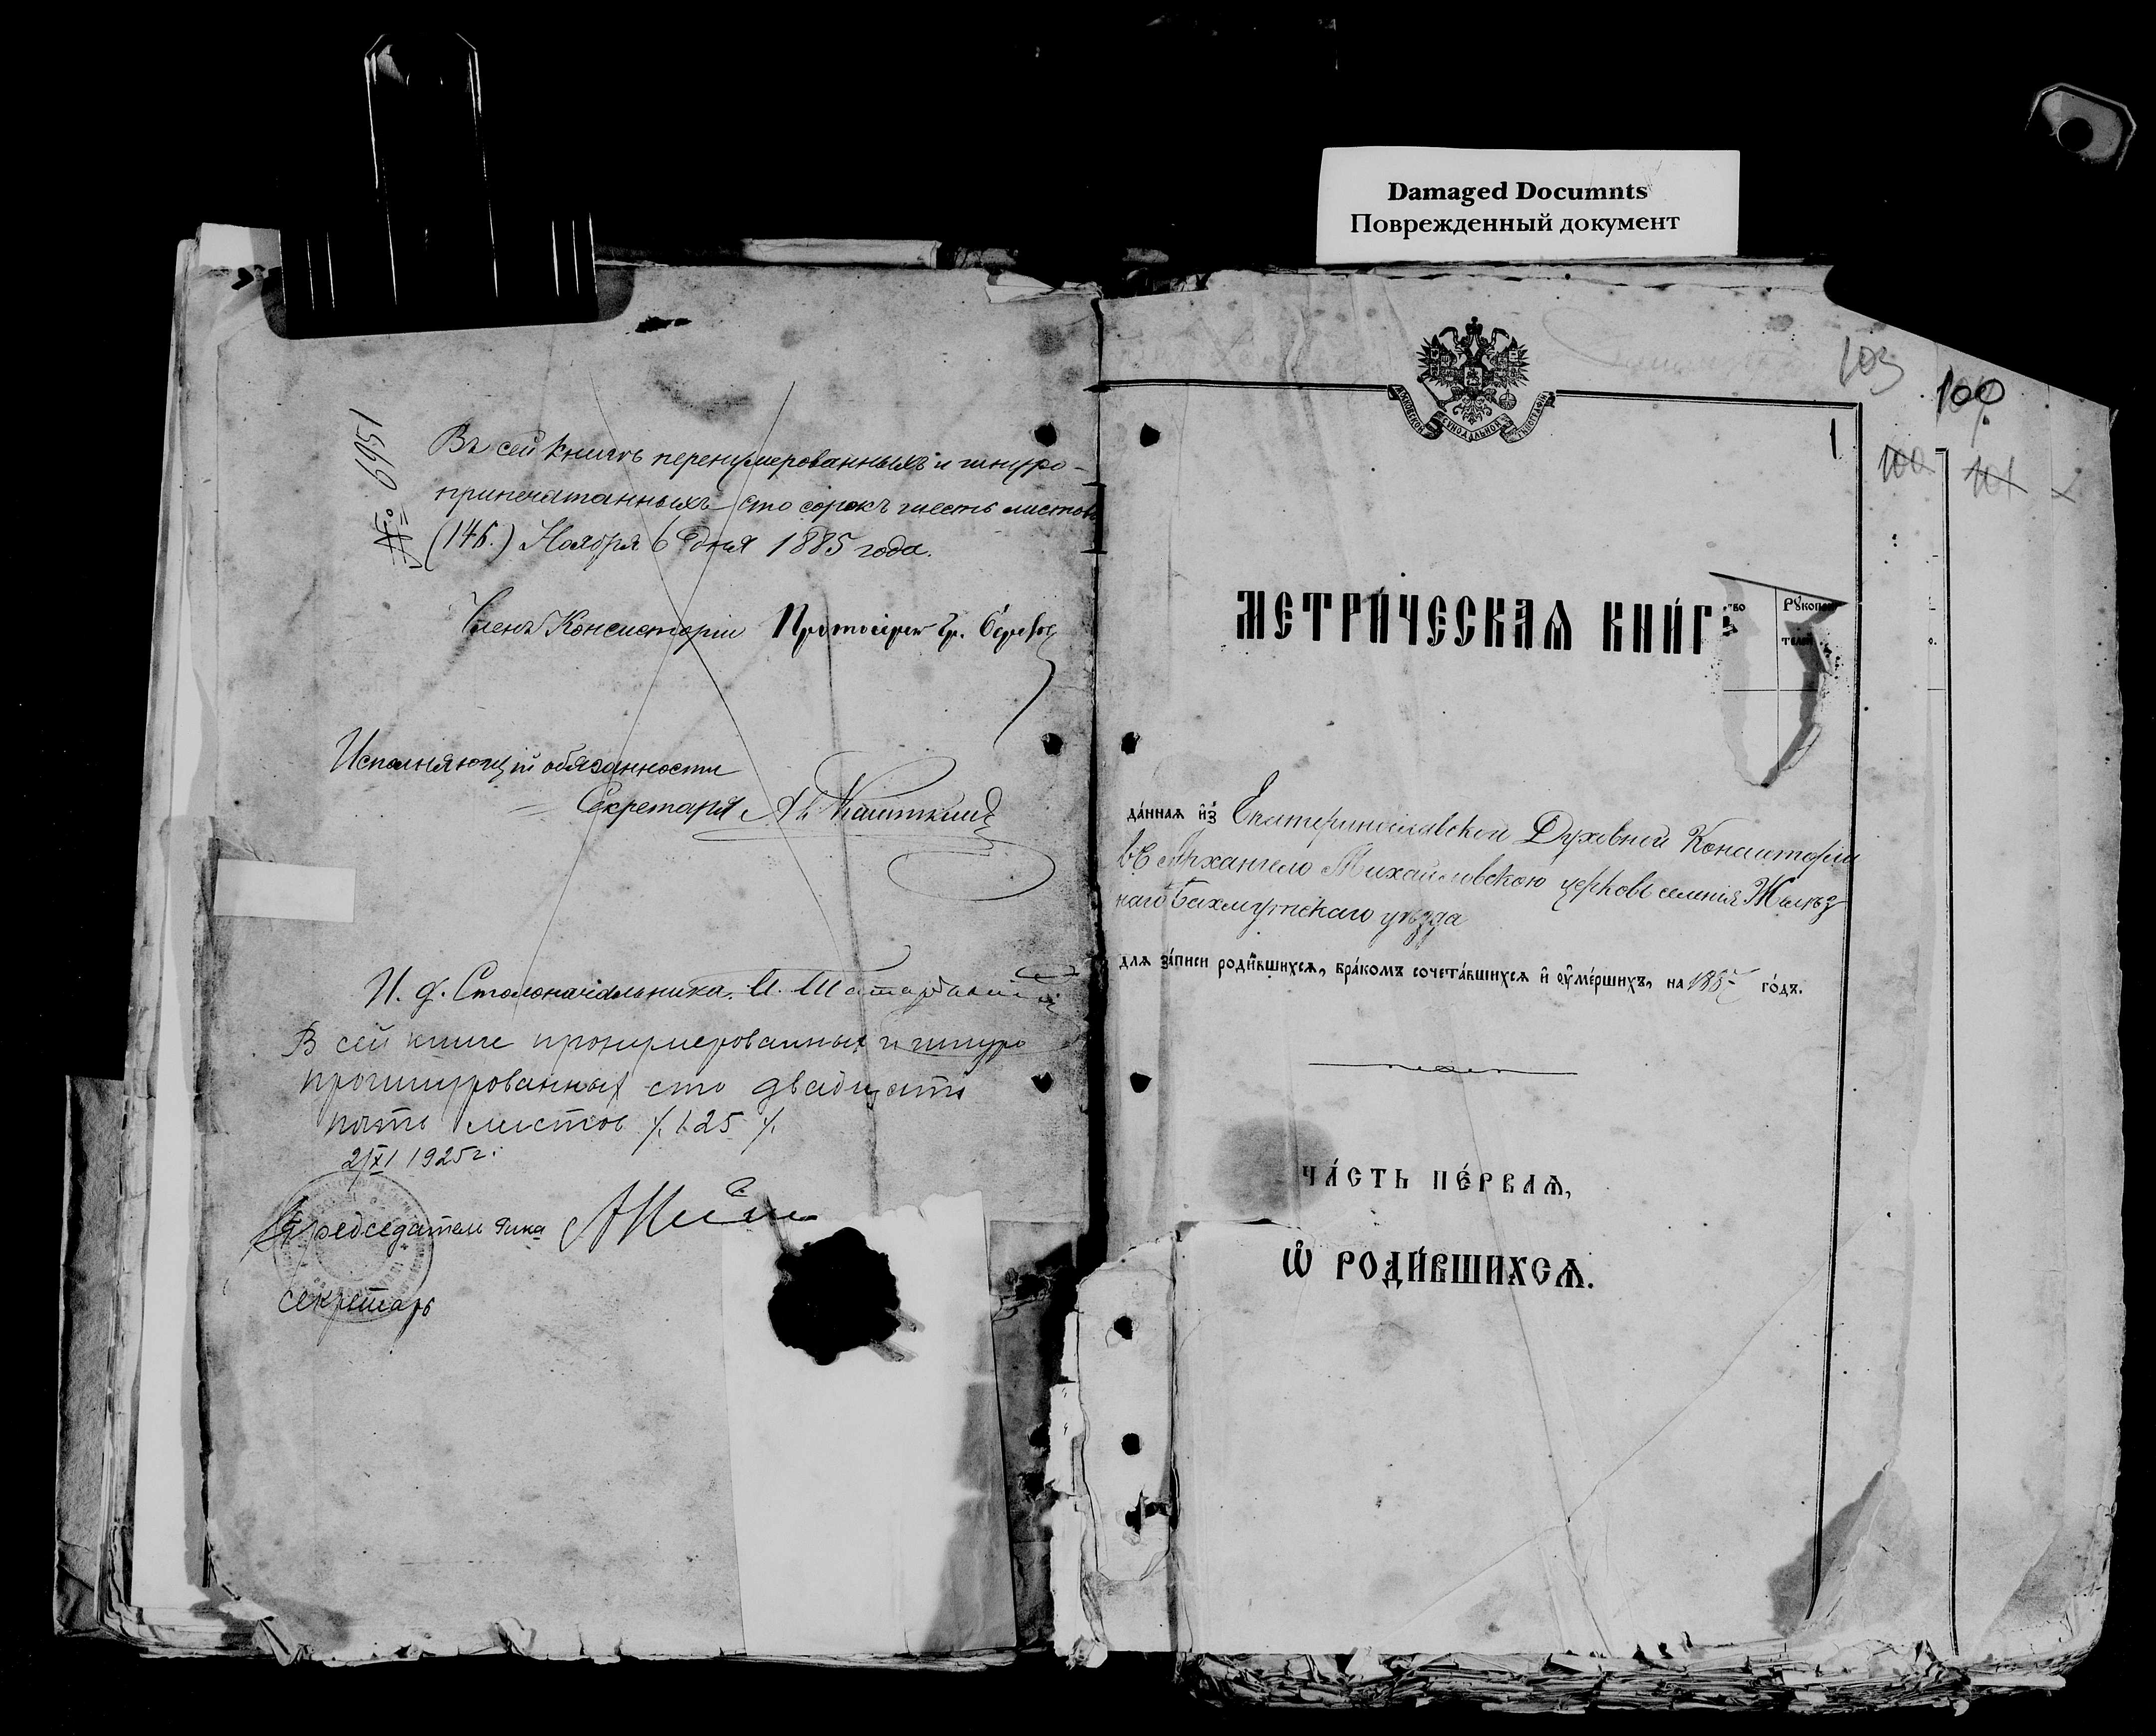 Damaged Documnts
Поврежденный документ
№ 6951
Въ сей книгѣ перенумерованныхъ и шнуро-
припечатанныхъ сто сорокъ шесть листовъ
(146.) Ноября 6 дня 1885 года.
Членъ Консисторіи Протоіерей Гр.
Исполняющій обязанности
Секретаря
И. д. Столоначальника И.
В сей книге пронумерованных и шнуро
прошнурованных сто двадцать
пять листов /.125 /.
2/XI 1925 г.
Председатель Рика
Секретарь
103
100
1
100
101
МОСКОВСКОЙ СУНОДАЛЬНОЙ ТУПОГРАФІИ
МЕТРИ́ЧЕСКАѦ КНИ́Г
тво
Рꙋкопри
телей
да́ннаѧ и҆з̾ Екатеринославской Духовной Консисторіи
въ Архангело Михайловскою церковь селенія Желѣз
наго Бахмутскаго уѣзда
длѧ за́писи роди́вшихсѧ, бра́комъ сочета́вшихсѧ и҆ ᲂу҆ме́ршихъ, на 188 го́дъ.
ЧА́СТЬ ПЕ́РВАѦ,
Ѽ РОДИ́ВШИХСѦ.